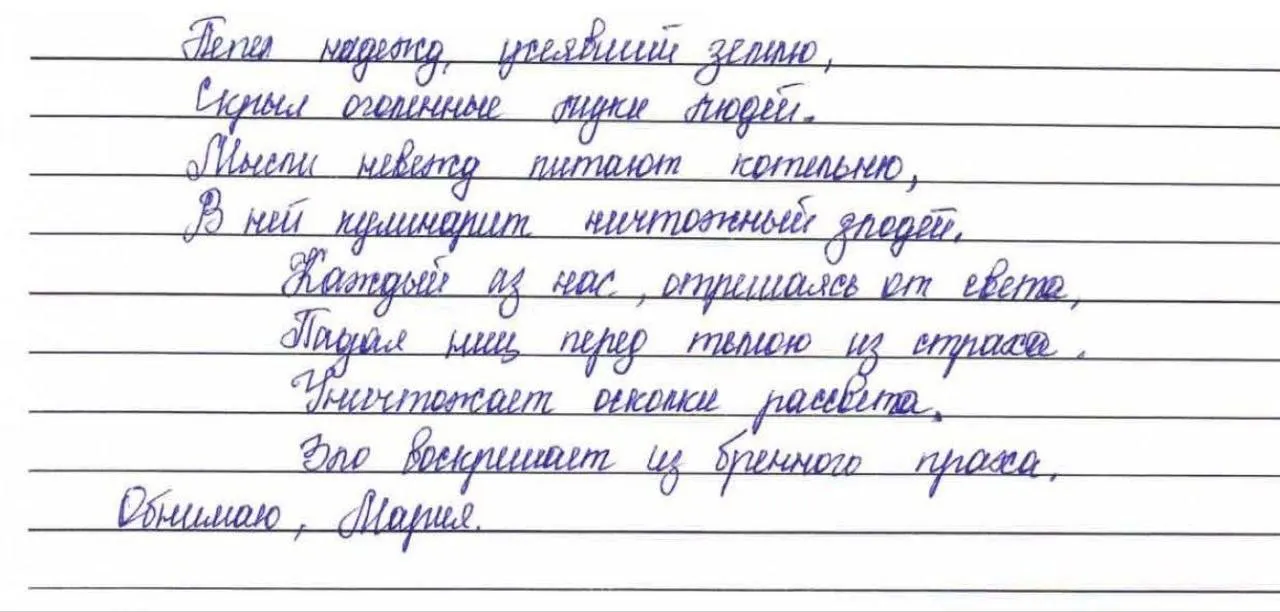 Пепел надежд, усеявший землю,
Скрыл оголенные муки людей.
Мысли невежд питают котельню,
В ней кулинарит ничтожный злодей.
Каждый из нас, отрешаясь от света,
Падая ниц перед тьмою из страха.
Уничтожает осколки рассвета,
Зло воскрешает из бренного праха.
Обнимаю, Мария.